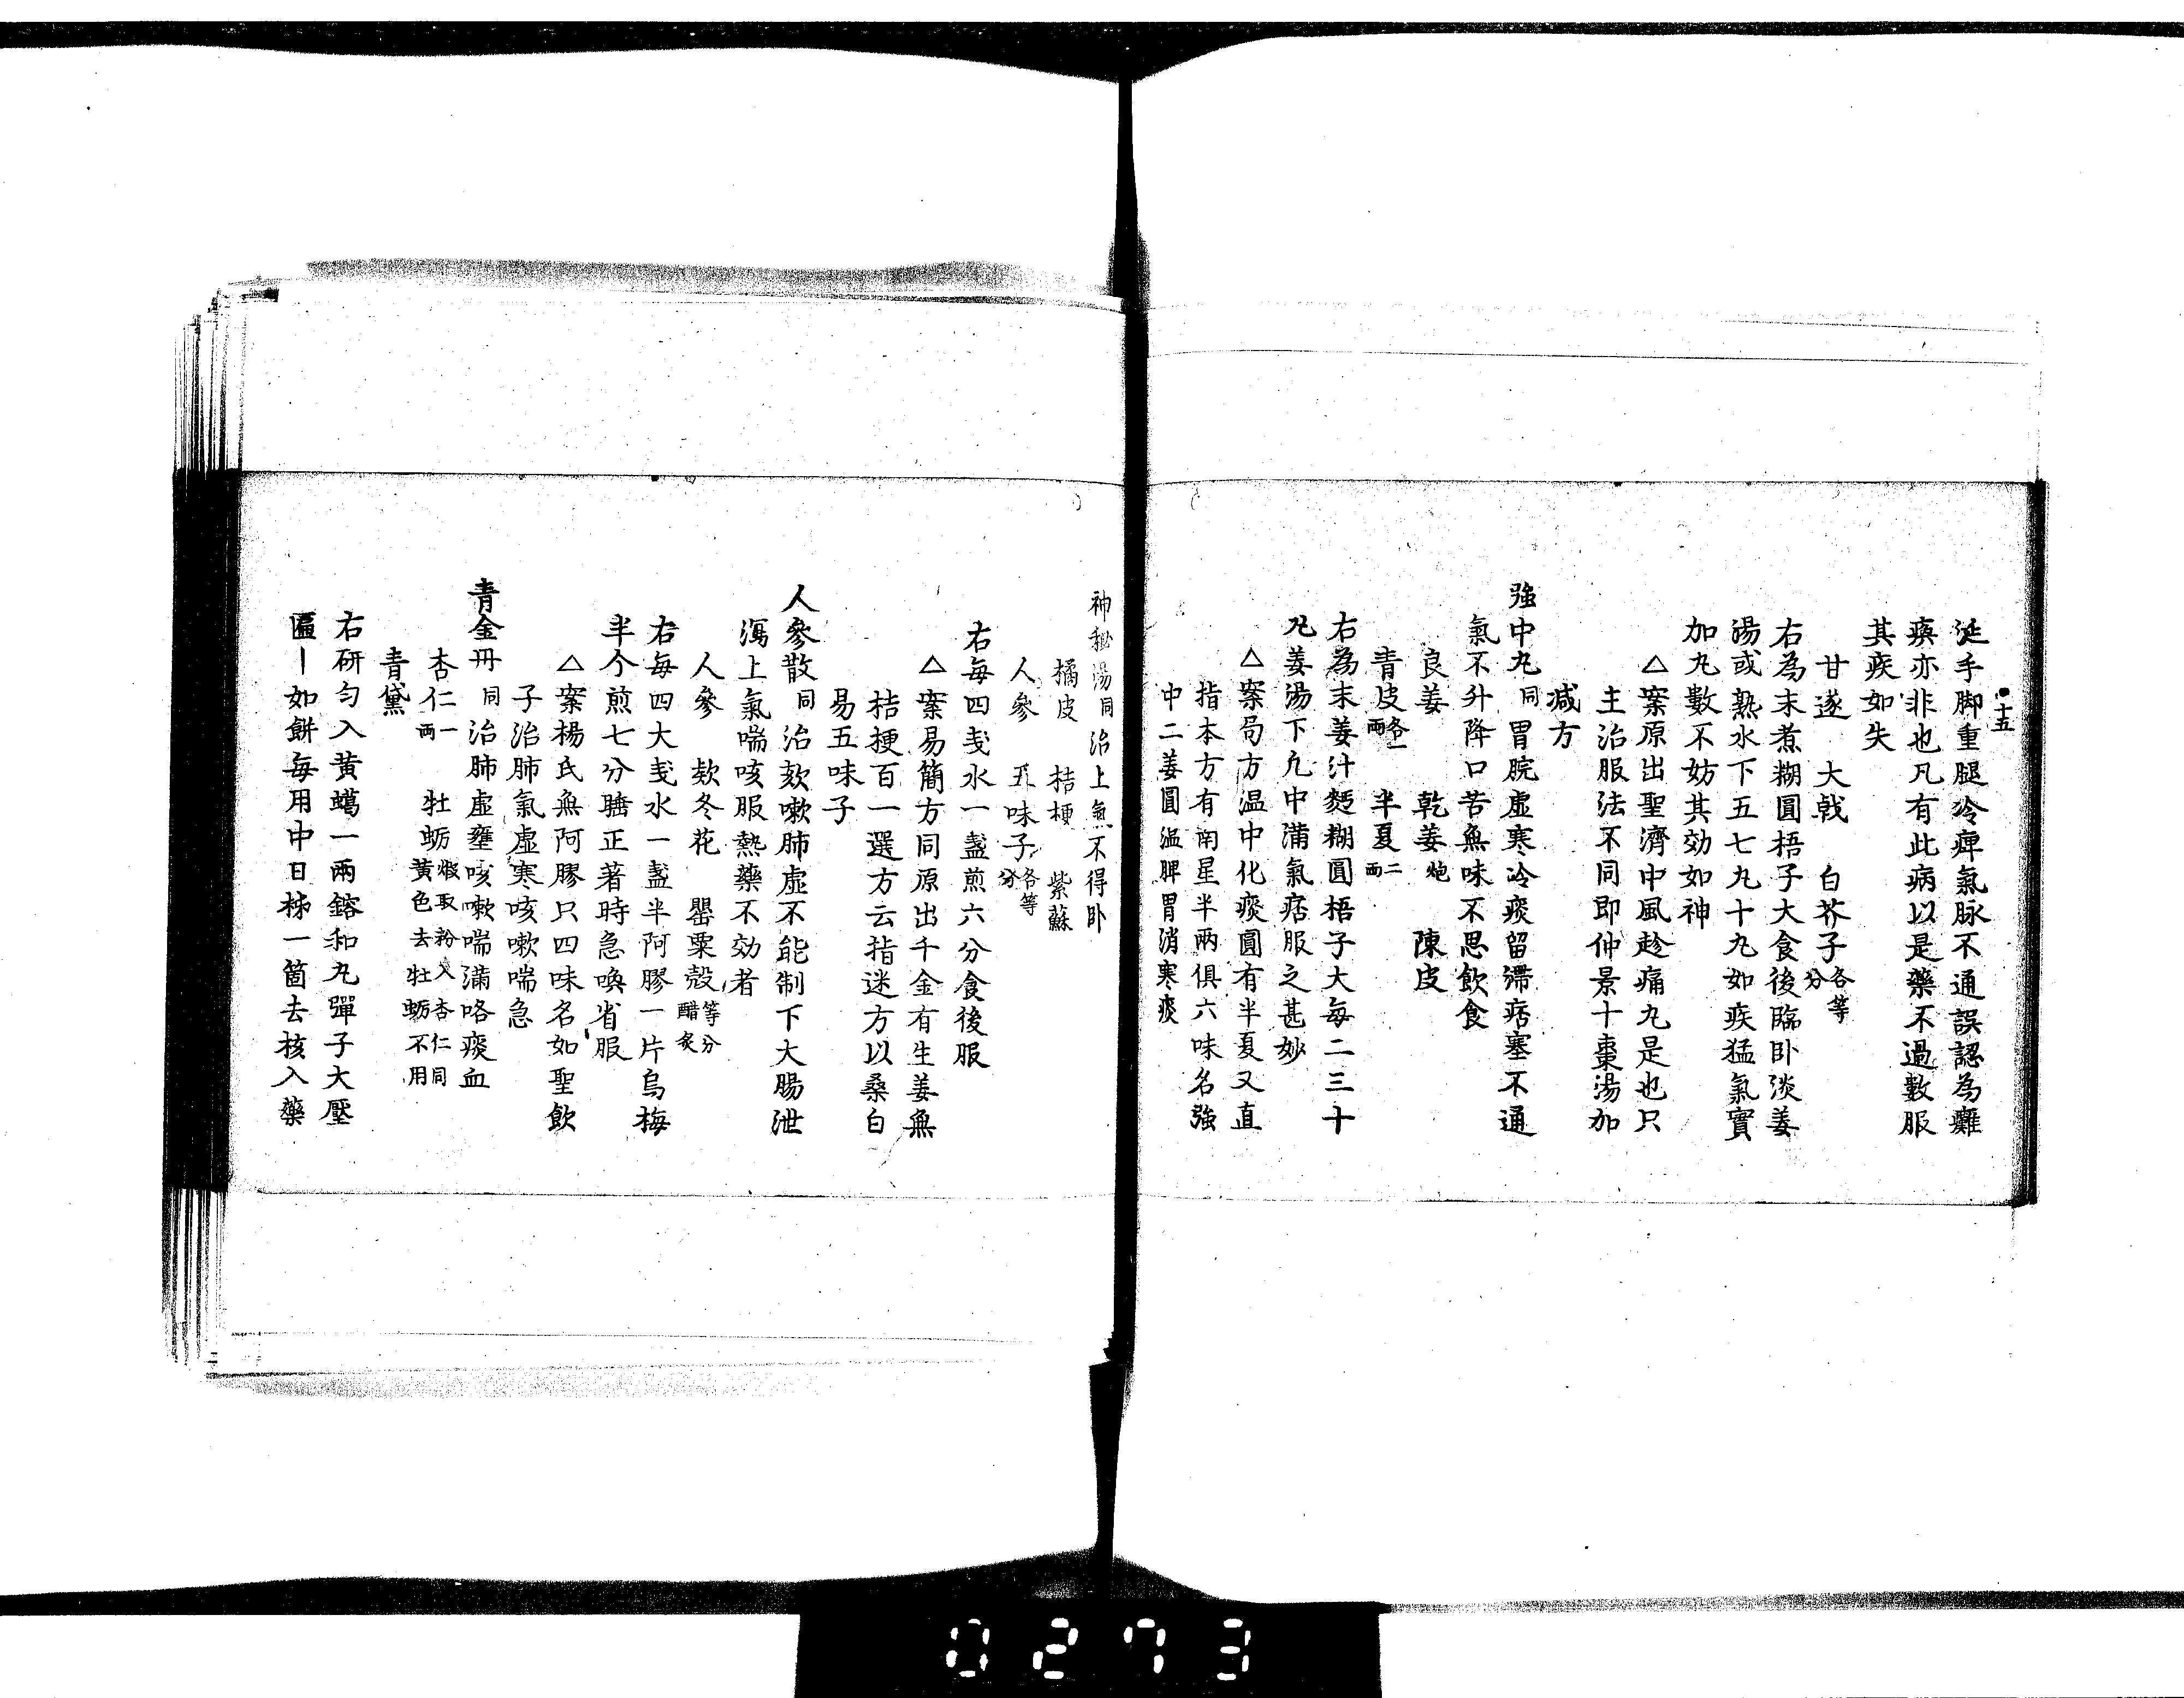 ●十五
涎手脚重腿冷痺氣脉不通誤認為癱
瘓亦非也凡有此病以是藥不過數服
其疾如失
甘遂　大戟　白芥子各等分
右為末煮糊圓梧子大食後臨卧淡姜
湯或熟水下五七九十九如疾猛氣實
加九數不妨其効如神
△案原出聖濟中風趁痛九是也只
主治服法不同即仲景十棗湯加
减方
強中九同 胃脘虛寒冷痰留滯痞塞不通
氣不升降口苦無味不思飲食
良姜　乾姜炮　陳皮
青皮各一兩　半夏二兩
右為末姜汁麪糊圓梧子大每二三十
九姜湯下九中滿氣痞服之甚妙
△案局方温中化痰圓有半夏又直
指本方有南星半兩俱六味名強
中二姜圓温脾胃消寒痰
神秘湯同 治上氣不得卧
橘皮　桔梗　紫蘇
人參　五味子各等分
右每四戔水一盞煎六分食後服
△案易簡方同原出千金有生姜無
桔梗百一選方云指迷方以桑白
易五味子
人參散同 治欬嗽肺虛不能制下大腸泄
瀉上氣喘咳服熱藥不効者
人參　欵冬花　罌粟殼等分醋炙
右每四大戔水一盞半阿膠一片烏梅
半个煎七分臨正著時急喚省服
△案楊氏無阿膠只四味名如聖飲
子治肺氣虛寒咳嗽喘急
青金丹同 治肺虛壅咳嗽喘滿咯痰血
杏仁一兩　牡蛎煅取粉入杏仁同黃色去牡蛎不用
青黛
右研匀入黃蠟一兩鎔和九彈子大壓
匾｜如餅每用中日柹一箇去核入藥
0273